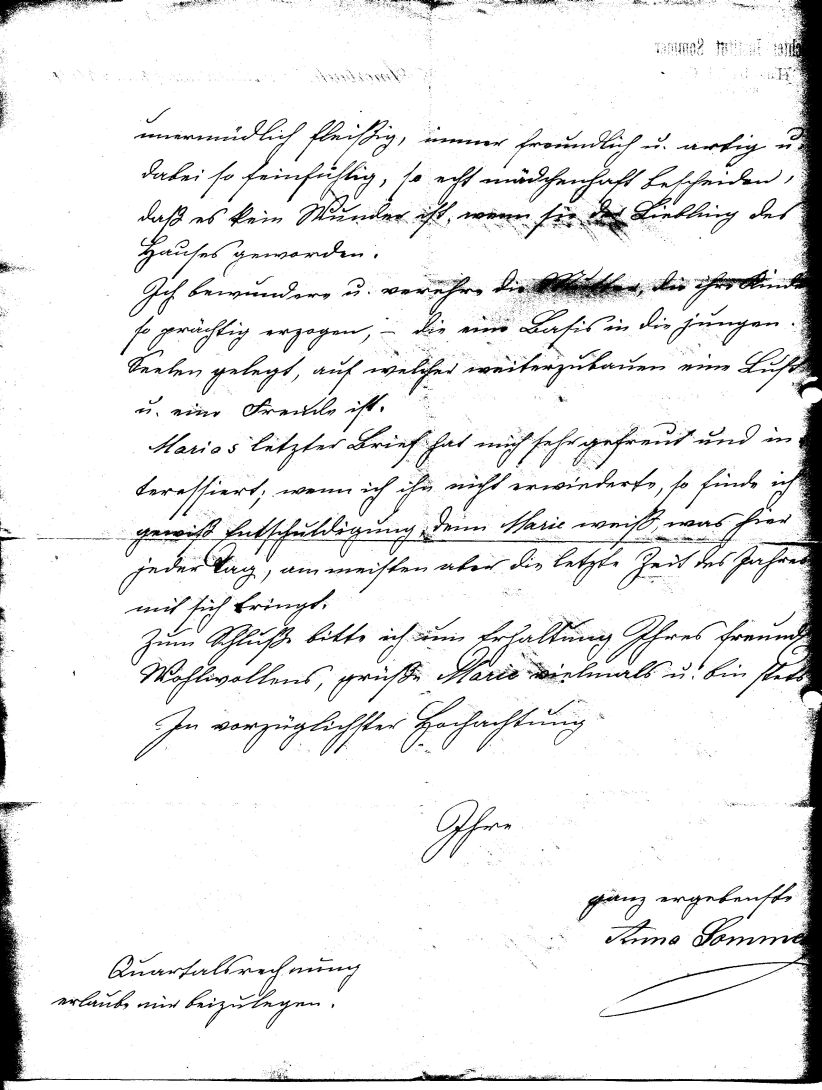 unermüdlich fleißig, immer freundlich u. artig u.
dabei so feinfühlig, so echt mädchenhaft bescheiden,
daß es kein Wunder ist, wenn sie der Liebling des
Hauses geworden.
Ich bewundere u. verehre die Mutter, die ihre Kinder
so prächtig erzogen, – die eine Basis in die jungen
Seelen gelegt, auf welcher weiterzubauen eine Lust
u. eine Freude ist.
Maries letzter Brief hat mich sehr gefreut und in-
teressiert; wenn ich ihn nicht erwiederte, so finde ich
gewiß Entschuldigung, denn Marie weiß was hier
jeder Tag, am meisten aber die letzte Zeit des Jahres
mit sich bringt.
Zum Schluße bitte ich um Erhaltung Ihres freundl
Wohlwollens, grüße Marie vielmals u. bin stets
In vorzüglichster Hochachtung
Ihre
ganz ergebenste
Anna Sommer
Quartalsrechnung
erlaube mir beizulegen.